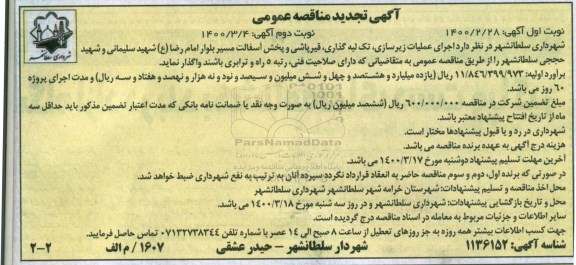 آگهی تجدید مناقصه عمومی
نوبت اول آگهی: ۱۴۰۰/۲/۲۸ نوبت دوم آگهی: ۱۴۰۰/۳/۴
شهرداری سلطانشهر در نظر دارد اجرای عملیات زیرسازی، تک لیه گذاری، قیرپاشی و پخش آسفالت مسیر بلوار امام رضا (ع) شهید سلیمانی و شهید
حججی سلطانشهر را از طریق مناقصه عمومی به متقاضیانی که دارای صلاحیت فنی، رتبه ۵ راه و ترابری باشند واگذار نماید.
برآورد اولیه: ۱۱/۸۴۶/۳۹۹/۹۷۳ ریال (یازده میلیارد و هشتصد و چهل و شش میلیون و سیصد و نود و نه هزار و نهصد و هفتاد و سه ریال) و مدت اجرای پروژه
۶۰ روز می باشد.
مبلغ تضمین شرکت در مناقصه ۶۰۰/۰۰۰/۰۰۰ ریال (ششصد میلیون ریال) به صورت وجه نقد یا ضمانت نامه بانکی که مدت اعتبار تضمین مذکور باید حداقل سه
ماه از تاریخ افتتاح پیشنهاد معتبر باشد.
شهرداری در رد و یا قبول پیشنهادها مختار است.
هزینه درج آگهی به عهده برنده مناقصه می باشد.
آخرین مهلت تسلیم پیشنهاد دوشنبه مورخ ۱۴۰۰/۳/۱۷ می باشد.
در صورتی که برنده اول، دوم و سوم مناقصه حاضر به انعقاد قرارداد نگردد سپرده آنان به ترتیب به نفع شهرداری ضبط خواهد شد.
محل اخذ مناقصه و تسلیم پیشنهادات: شهرستان خرامه شهر سلطانشهر شهرداری سلطانشهر
محل و تاریخ بازگشایی پیشنهادات: شهرداری سلطانشهر و در روز سه شنبه مورخ ۱۴۰۰/۳/۱۸ می باشد.
سایر اطلاعات و جزئیات مربوط به معامله در اسناد مناقصه درج گردیده است.
جهت کسب اطلاعات بیشتر همه روزه به جز روزهای تعطیل از ساعت ۸ صبح الی ۱۴ عصر با شماره تلفن ۰۷۱۳۲۷۳۸۳۴۴ تماس حاصل فرمایید.
شناسه آگهی: ۱۱۳۶۱۵۲ شهردار سلطانشهر – حیدر عشقی ۱۶۰۷/ م الف ۲-۲
ParsNamadData